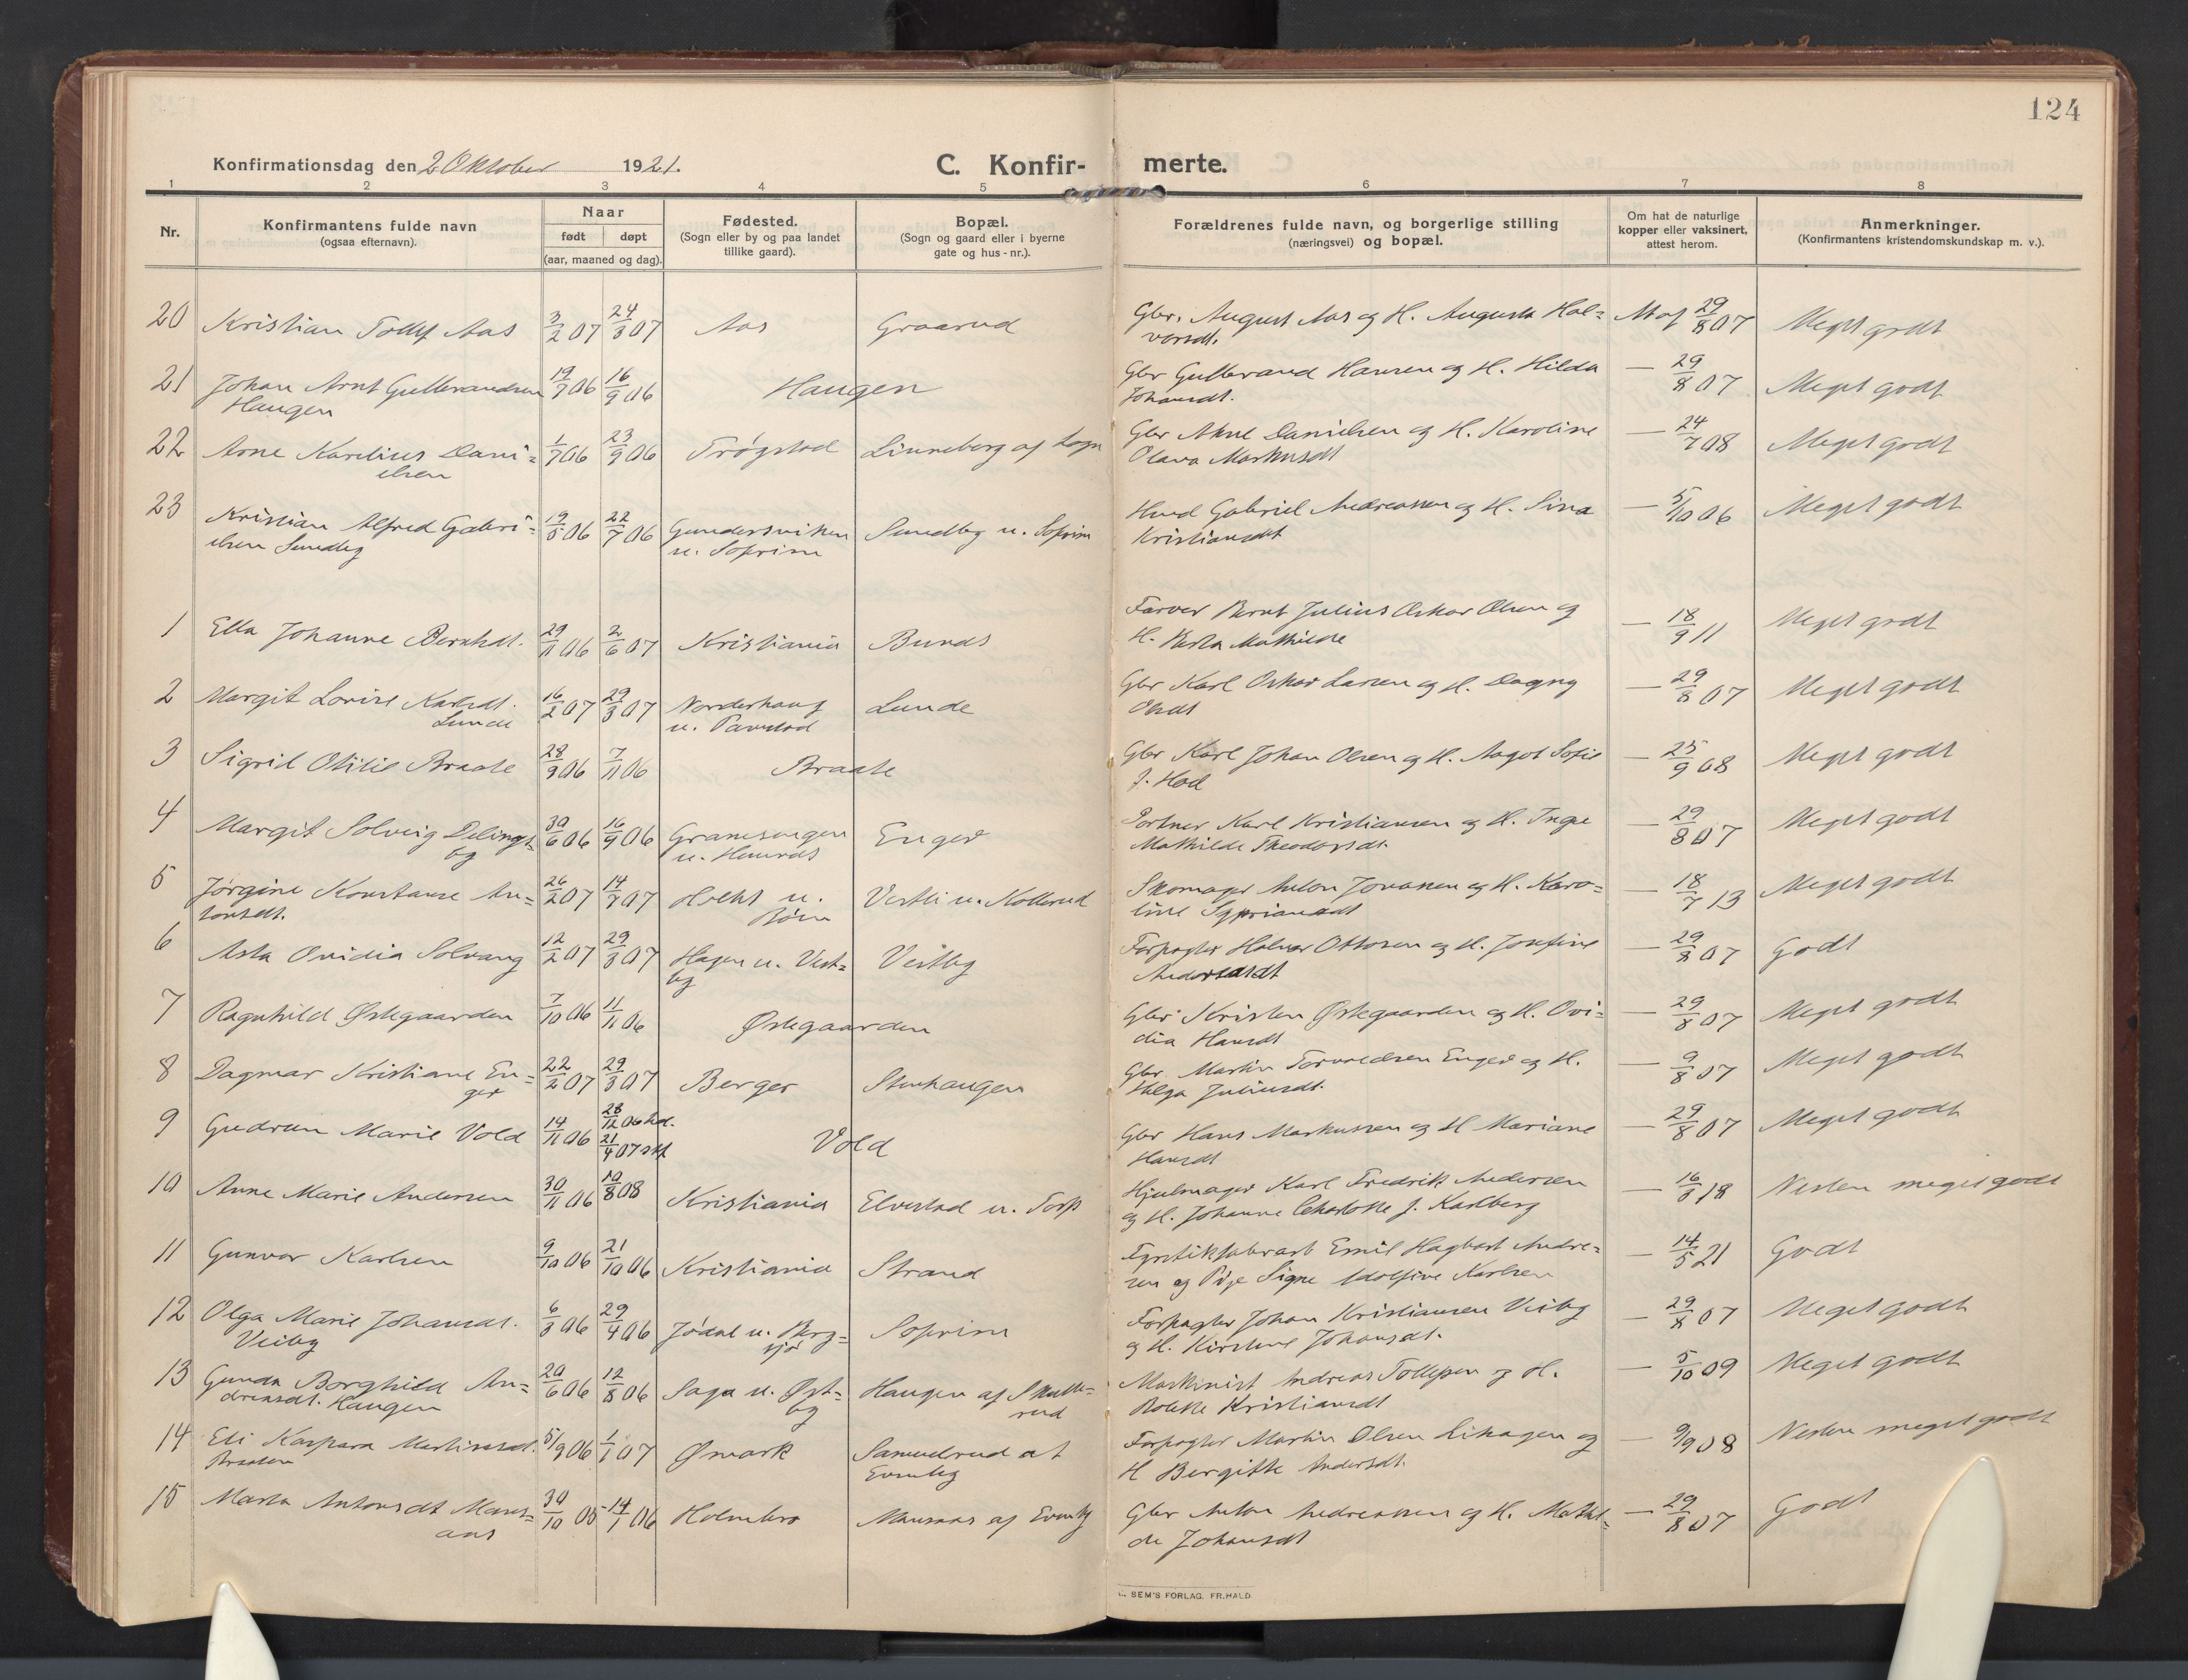 124
Konfirmationsdag den 2 Oktober 1921.
C. Konfir- merte.
1 2 3 4 5 6 7 8
Nr.
Konfirmantens fulde navn
(ogsaa efternavn).
Naar
født døpt
(aar, maaned og dag).
Fødested.
(Sogn eller by og paa landet
tillike gaard).
Bopæl.
(Sogn og gaard eller i byerne
gate og hus-nr.).
Forældrenes fulde navn, og borgerlige stilling
(næringsvei) og bopæl.
Om hat de naturlige
kopper eller vaksinert,
attest herom.
Anmerkninger.
(Konfirmantens kristendomskundskap m. v.).
20 Kristian Tollef Aas 3/2 07 24/3 07 Aas Graarud Gbr. August Aas og H. Augusta Hal= 29/8 07 Meget godt
vorsdt.
21 Johan Arnt Gulbrandsen 19/7 06 16/9 06 Haugen Gbr Gulbrand Hansen og H. Hilda — 29/8 07 Meget godt
Haugen Johansdt.
22 Arne Karelius Dani= 1/7 06 23/9 06 Trøgstad Linneberg af Gbr Danielsen og H. Karoline — 24/7 08 Meget godt
elsen Olava Markusdt
23 Kristian Alfred Gabri= 19/5 06 22/7 06 Gundersviken Sundby u. Soprim Gabriel Andreassen og H. Sina — 5/10 06 Meget godt
elsen Sundby u. Soprim Kristiansdt
1 Ella Johanne Berntsdt. 29/11 06 2/6 07 Kristiania Bunds Farver Bernt Julius Oskar Olsen og — 18/9 11 Meget godt
H. Berta Mathilde
2 Margit Lovise Karlsdt. 16/2 07 29/3 07 Norderhaug Lunde Gbr Karl Oskar Larsen og H. Dagny — 29/8 07 Meget godt
Lunde Olsdt
3 Sigrid Otilie Braate 28/9 06 7/11 06 Braate Gbr Karl Johan Olsen og H. Aagot Sofie — 25/9 08 Meget godt
4 Margit Solveig Delings= 30/6 06 16/9 06 Granesengen Enger Portner Karl Kristiansen og H. Inga — 29/8 07 Meget godt
by Mathilde Theodorsdt.
5 Jørgine Konstanse An= 26/2 07 14/7 07 Holt u. Vestli u. Kollerud Skomager Anton Jovansen og H. Karo= — 18/7 13 Meget godt
tonsdt. line Sypriansdt
6 Asta Ovidia Solvang 12/2 07 29/3 07 Hagen u. Vest= Vestby Forpagter Halvor Ottosen og H. Josefine — 29/8 07 Godt
by Andersdt
7 Ragnhild Østegaarden 7/10 06 11/11 06 Østegaarden Gbr Kristen Østegaarden og H. Ovi= — 29/8 07 Meget godt
dia Hansdt
8 Dagmar Kristiane En= 22/2 07 29/3 07 Berger Stenhaugen Gbr. Martin Torvaldsen Enger og H. — 9/8 07 Meget godt
ger Helga Juliusdt.
9 Gudrun Marie Vold 14/11 06 28/12 06 hd. Vold Gbr Hans Markussen og H Mariane — 29/8 07 Meget godt
21/4 07 stf Hansdt
10 Anne Marie Andersen 30/11 06 10/8 08 Kristiania Elvestad u. Torp Hjulmager Karl Fredrik Andersen — 16/8 18 Nesten meget godt
og H. Johanne Charlotte f. Karlberg
11 Gunvor Karlsen 9/10 06 21/10 06 Kristiania Strand Emil Hagbart Andre= — 14/5 21 Godt
sen og Pige Signe Adolfine Karlsen
12 Olga Marie Johansdt. 6/3 06 29/4 06 Jødal u. Berg= Soprim Forpagter Johan Kristiansen Veiby — 29/8 07 Meget godt
Veiby sjø og H. Kirstine Johansdt.
13 Gunda Borghild An= 20/6 06 12/8 06 Saga u. Øst= Haugen af Skulle= Maskinist Andreas Tollefsen og H. — 5/10 09 Meget godt
dreasdt. Haugen by rud Bolette Kristiansdt
14 Eli Kaspara Martinsdt. 5/9 06 1/1 07 Ømark Samuelsrud af Forpagter Martin Olsen Lihagen og — 9/9 08 Nesten meget godt
Braaten Evenby H Bergitte Andersdt.
15 Marta Antonsdt Maas= 30/10 05 14/1 06 Holmebro af Evenby Gbr Anton Andreassen og H. Mathil= — 29/8 07 Godt
aas de Johansdt
SEM'S FORLAG. FR. HALD